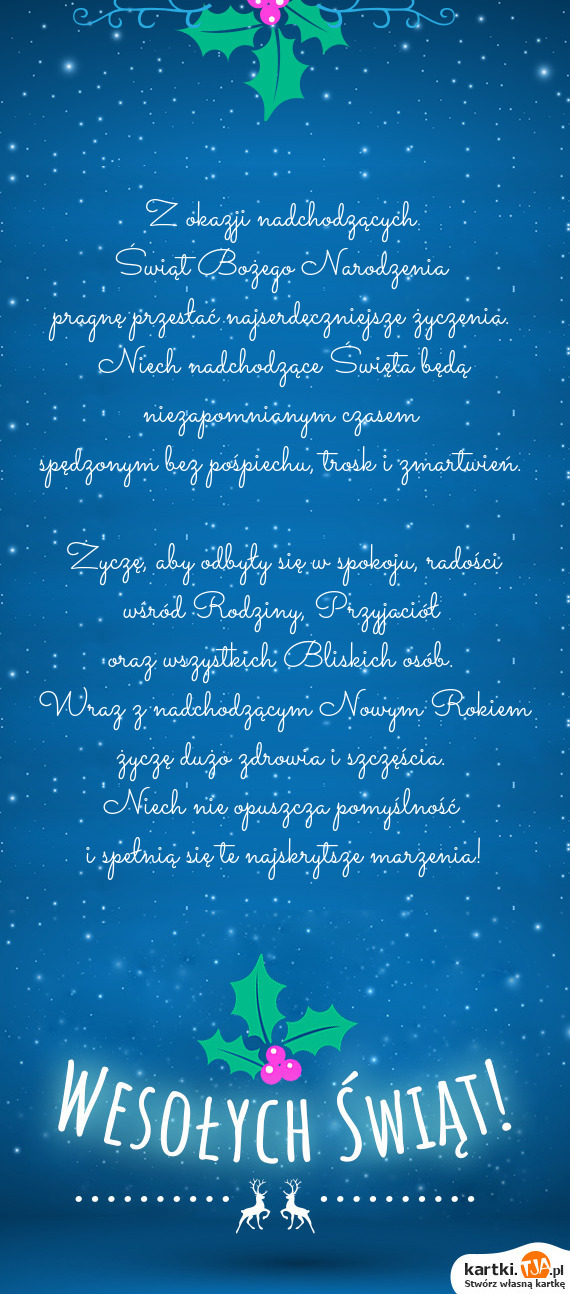 Z okazji nadchodzących
Świąt Bożego Narodzenia
pragnę przesłać najserdeczniejsze życzenia.
Niech nadchodzące Święta będą
niezapomnianym czasem
spędzonym bez pośpiechu, trosk i zmartwień.
Życzę, aby odbyły się w spokoju, radości
wśród Rodziny, Przyjaciół
oraz wszystkich Bliskich osób.
Wraz z nadchodzącym Nowym Rokiem
życzę dużo zdrowia i szczęścia.
Niech nie opuszcza pomyślność
i spełnią się te najskrytsze marzenia!
Wesołych Świąt!
kartki.TJA.pl
Stwórz własną kartkę